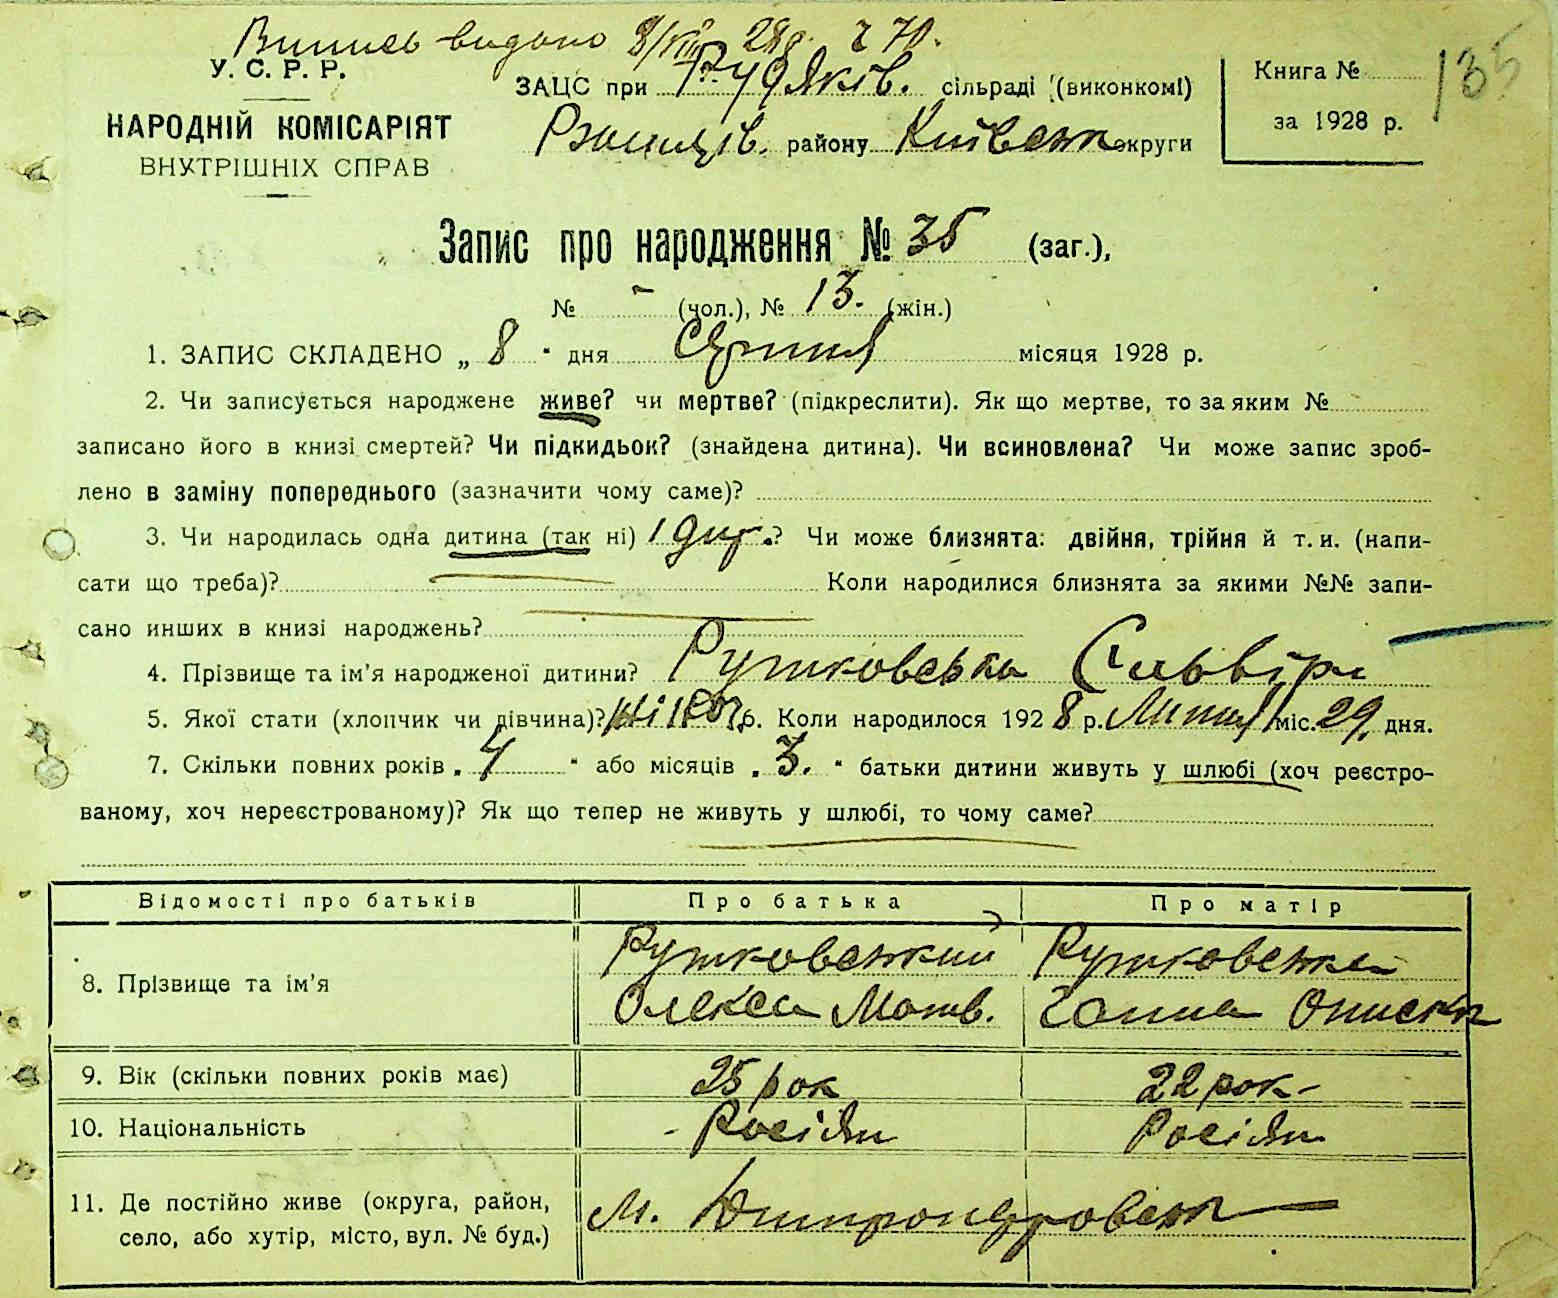 Випись видано 8/VIII 28 р. № 70.
У. С. Р. Р.
НАРОДНІЙ КОМІСАРІЯТ
ВНУТРІШНІХ СПРАВ
ЗАЦС при Рудяків. сільраді (виконкомі)
Ржищів. району Київськ округи
Книга №
за 1928 р.
135
Запис про народження № 35 (заг.),
№ - (чол.), № 13. (жін.)
1. ЗАПИС СКЛАДЕНО „ 8 " дня Серпня місяця 1928 р.
2. Чи записується народжене живе? чи мертве? (підкреслити). Як що мертве, то за яким №
записано його в книзі смертей? Чи підкидьок? (знайдена дитина). Чи всиновлена? Чи може запис зроб-
лено в заміну попереднього (зазначити чому саме)?
3. Чи народилась одна дитина (так ні) 1 дит.? Чи може близнята: двійня, трійня й т. и. (напи-
сати що треба)? Коли народилися близнята за якими №№ запи-
сано инших в книзі народжень?
4. Прізвище та ім'я народженої дитини? Рутковська
5. Якої стати (хлопчик чи дівчина)? Коли народилося 1928 р. Липня міс. 29 дня.
7. Скільки повних років „ 4 " або місяців „ 3. " батьки дитини живуть у шлюбі (хоч реєстро-
ваному, хоч нереєстрованому)? Як що тепер не живуть у шлюбі, то чому саме?
Відомості про батьків Про батька Про матір
8. Прізвище та ім'я
Рутковський Рутковська
Олекса Матв. Ганна
9. Вік (скільки повних років має) 25 рок 22 рок-
10. Національність Росіян Росіян
11. Де постійно живе (округа, район,
село, або хутір, місто, вул. № буд.)
м. Дніпропетровськ